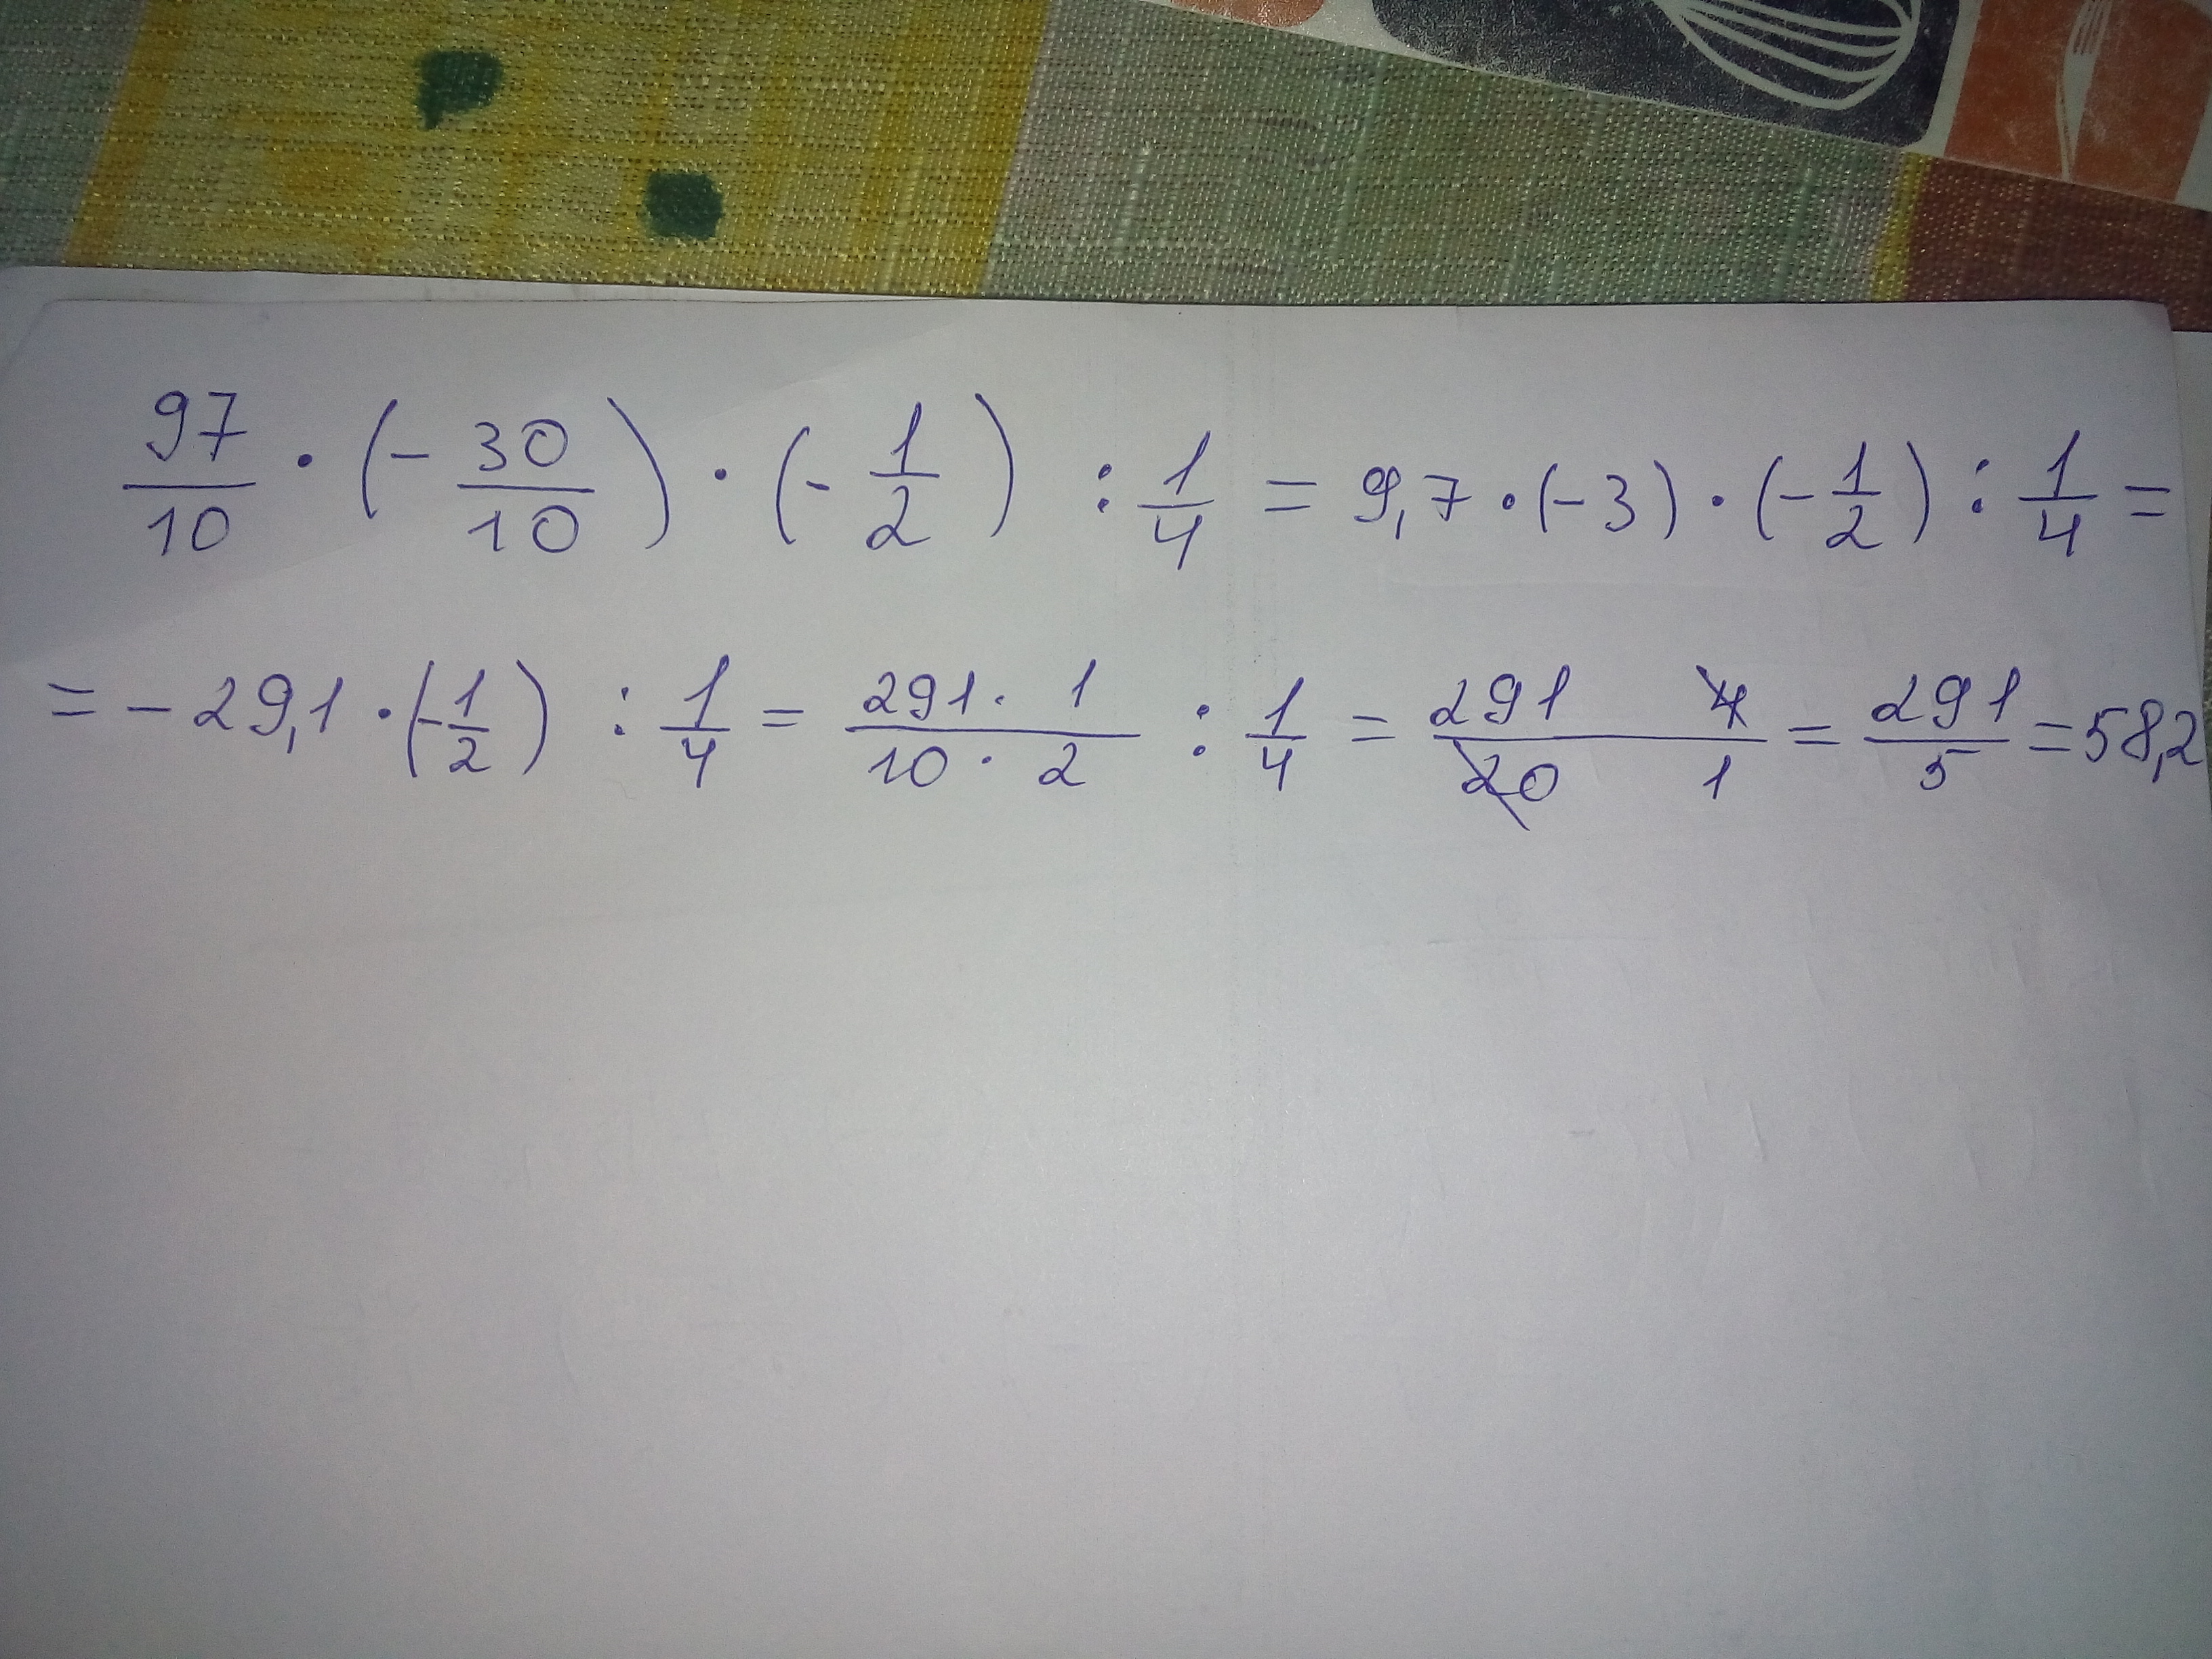 97/10 · (- 30/10) · (- 1/2) : 1/4 = 9,7 · (-3) · (- 1/2) : 1/4 =
= - 29,1 · (- 1/2) : 1/4 = 291 · 1/10 · 2 : 1/4 = 291 4/20 1 = 291/5 = 58,2